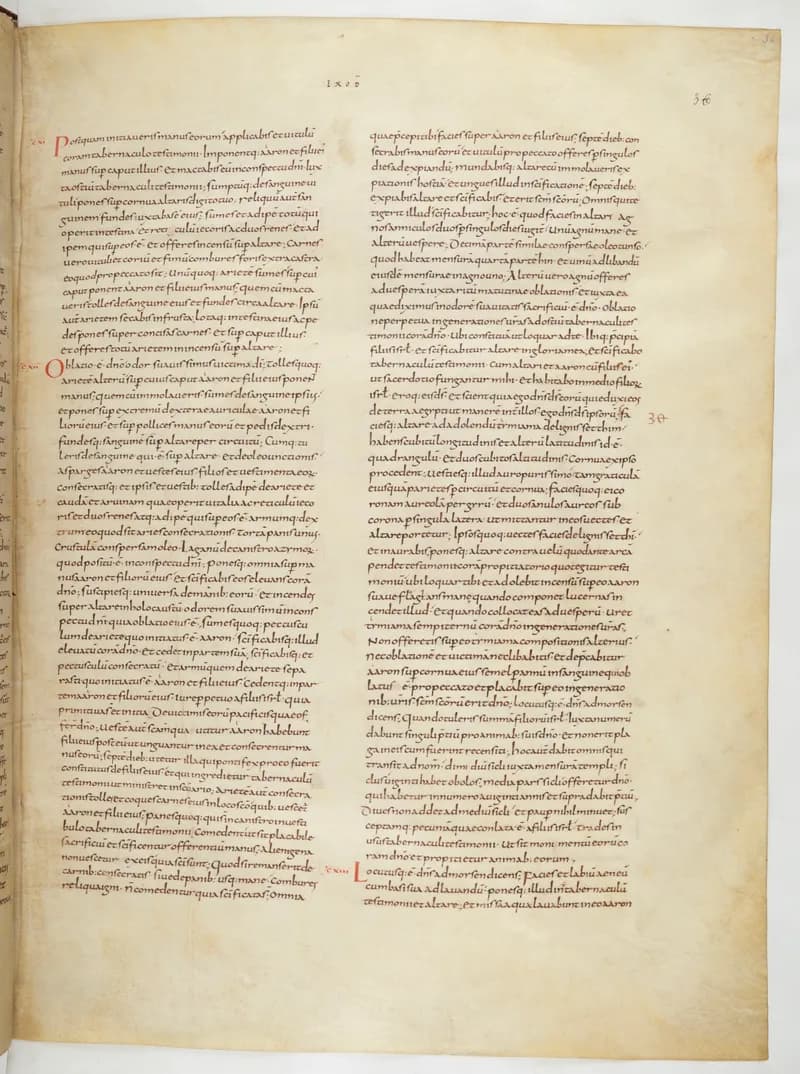 IXOD
36
Postquam initiaveris manus eorum applicabis et vitulū
coram tabernaculo testimonii. Imponentq; aaron et filii ei'
manus sup caput illius et mactabis eū in conspectu dnī iux
ta ostiū tabernaculi testimonii; sumptūq; de sanguine vi
tuli pones sup cornua altaris digito tuo, reliquū aūt san
guinem fundes iuxta base eius; sumes et adipē totū qui
operit intestina et reticulū iecoris ac duos renes et ad
ipem qui sup eos ē et offeres incensū sup altare; Carnes
vero vituli et coriū et fimū combures foris extra castra
eo quod pro peccato sit; Unū quoq; arietē sumes sup cui'
caput ponent aaron et filii eius manus; quem cū macta
veris tolles de sanguine eius et fundes circa altare. Ipsū
aūt arietem secabis in frusta, lotaq; intestina eius ac pe
des pones sup concisas carnes et sup caput illius
et offeres totū arietem in incensū sup altare;
Oblatio ē dnō odor suavissimus victimae dnī; Tolles quoq;
arietē alterū sup cuius caput aaron et filii eius ponent
manus, quem cū immolaveris sumes de sanguine ipsius
et pones sup extremū dexterae auriculae aaron et fi
liorū eius et sup pollices manus eorū et pedis dextri.
fundesq; sanguinē sup altare per circuitū; Cumq; tu
leris de sanguine qui ē sup altare et de oleo unctionis
asparges aaron et vestes eius filios et vestimenta eoꝝ
consecratisq; et ipsis et vestib; tolles adipē de ariete et
caudā et arvinam quae operit vitalia ac reticulū ieco
ris et duos renes atq; adipē qui sup eos ē armumq; dex
trum eo quod sit aries consecrationis tortā panis unius
Crustulā conspersam oleo laganū de canistro azymoꝝ
quod positū ē in conspectu dnī; Ponesq; omnia sup ma
nus aaron et filiorū eius et scīficabis eos elevans corā
dnō; suscipiesq; universa de manib; eorū et incendes
super altare in holocaustū odorem suavissimū in cons
pectu dnī quia oblatio eius ē, sumesq; pectuscu
lum de ariete quo initiatus ē aaron scīficabisq; illud
elevatū corā dnō et cedet in partem tuā; scīficabisq; et
pectusculū consecratū et armū quem de ariete sepa
rasti quo initiatus ē aaron et filii eius Cedentq; in par
tem aaron et filiorū eius iure perpetuo a filiis isrl quia
primitiva sē et initia de victimis eorū pacificis quae of
ferunt dnō; Vestē aūt scām qua utitur aaron habebunt
filii eius post eū ut unguantur in ea et consecrentur ma
nus eorū; septē dieb; utetur illa qui pontifex pro eo fuerit
constitutus de filiis eius et qui ingredietur tabernaculū
testimonii ut ministret in scūario; arietē aūt consecra
tionis tolles et coques carnes eius in loco scō quib; vescet'
aaron et filii eius; panes quoq; qui s in canistro in vesti
bulo tabernaculi testimonii Comedent ut sit placabile
sacrificiū et scīficentur offerentiū manus; alienigena
non vescetur ex eis quia scī sunt; Quod si remanserit de
carnib; consecratis sive de panib; usq; mane Combures
reliquias igni n comedentur quia scīficata s; Omnia
quae p̄cepi tibi facies super aaron et filiis eius; septē dieb; con
secrabis manus eorū et vitulū pro peccato offeres p singulos
dies ad expiandū; mundabisq; altare cū immolaveris ex
piationis hostiā et ungues illud in scīficationē; septē dieb;
expiabis altare et scīficabis et erit scm scōrū; Omnis qui te
tigerit illud scīficabitur; hoc ē quod facies in altari ag
nos anniculos duos p singulos dies iugit' Unū agnū mane et
alterū vespere; Decimā partē similae conspersae oleo tunso
quod habeat mensurā quartā parte hin et vinū ad libandū
eiusdē mensurae in agno uno; Alterū vero agnū offeres
ad vesperā iuxta ritū matutinae oblationis et iuxta ea
quae diximus in odorē suavitatis sacrificiū ē dnō. Oblatio
ne perpetua in generationes urās ad ostiū tabernaculi tes
timonii corā dnō. Ubi constituā ut loquar ad te. Ibiq; p̄cipiā
filiis isrl et scīficabitur altare in gloria mea; et scīficabo
tabernaculū testimonii Cum altari et aaron cū filiis ei'
ut sacerdotio fungantur mihi et habitabo in medio filioꝝ
isrl eroq; eis ds et scient quia ego dns ds eorū qui eduxi eos
de terra aegypti ut manerē int illos ego dns ds ipsorū; Fa
ciesq; altare ad adolendū tymiama de lignis setthim 30
habens cubitū longitudinis et alterū latitudinis id ē
quadrangulū et duos cubitos altitudinis Cornua ex ipso
procedent; Vestiesq; illud auro purissimo tam graticulā
eius quā parietes p circuitū et cornua, faciesq; ei co
ronam aureolā per gyrū et duos anulos aureos sub
corona p singula latera ut mittantur in eos vectes et
altare portetur; Ipsos quoq; vectes facies de lignis setthī
et inaurabis ponesq; altare contra velū quod ante arca
pendet testamonii corā propitiatorio quo tegitur testi
monīū ubi loquar tibi et adolebit incensū sup eo aaron
suave flagrans mane quando componet lucernas in
cendet illud et quando collocat eas ad vesperū Uret
tymiama sempiternū corā dnō in generationes vrās
Non offeretis sup eo tymiama compositionis alterius
nec oblationē et victimā nec libabitis et dep̄cabitur
aaron sup cornua eius semel p annū in sanguine quod
oblatū ē pro peccato et placabit sup eo in generatio
nib; uris scm scōrū erit dnō; Locutusq; ē dns ad mosen
dicens; Quando tuleris summā filiorū isrl iuxta numerū
dabunt singuli ptiū pro animab; suis dnō et non erit pla
ga in eis cum fuerint recensiti; hoc aūt dabit omnis qui
transit ad nomen dimidiū sicli iuxta mensurā templi; si
clus viginti habet obolos; media pars sicli offeretur dnō
qui habetur in numero a viginti annis et supra dabit ptiū;
Dives non addet ad mediū sicli et paup nihil minuet; sus
ceptamq; pecuniā quae conlata ē a filiis isrl trades in
usus tabernaculi testimonii Ut sit monimentū eorū co
ram dno et propitietur animab; eorum;
Locutusq; ē dns ad mosen dicens; Facies et labrū aeneū
cum basi sua ad lavandū ponesq; illud int tabernaculū
testimonii et altare; et missa aqua lavabunt in eo aaron